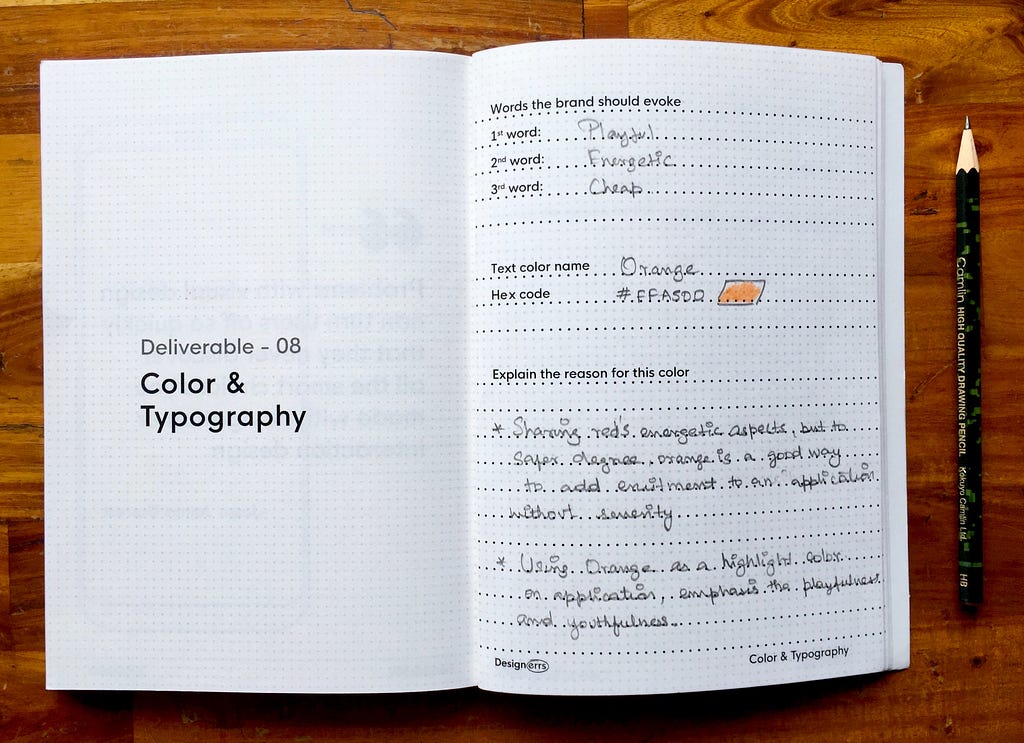 Deliverable - 08
Color &
Typography
Words the brand should evoke
1st word: Playful
2nd word: Energetic
3rd word: Cheap
Text color name Orange
Hex code #FFA500
Explain the reason for this color
* Sharing red's energetic aspects, but to
safer degree orange is a good way
to add to an application
without severity
* Using Orange as a highlight color
on application, emphasis the playfulness
and youthfulness.
Designerrs
Color & Typography
Camlin HIGH QUALITY DRAWING PENCIL Kokuyo Camlin Ltd. HB